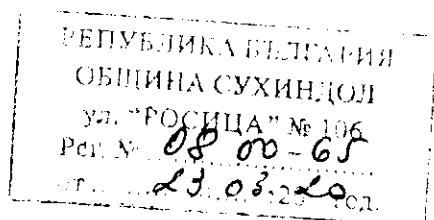 РЕПУБЛИКА БЪЛГАРИЯ
ОБЩИНА СУХИНДОЛ
ул. "РОСИЦА" № 106
Рег. № 08 00 - 65
от 23 03. 2020 год.